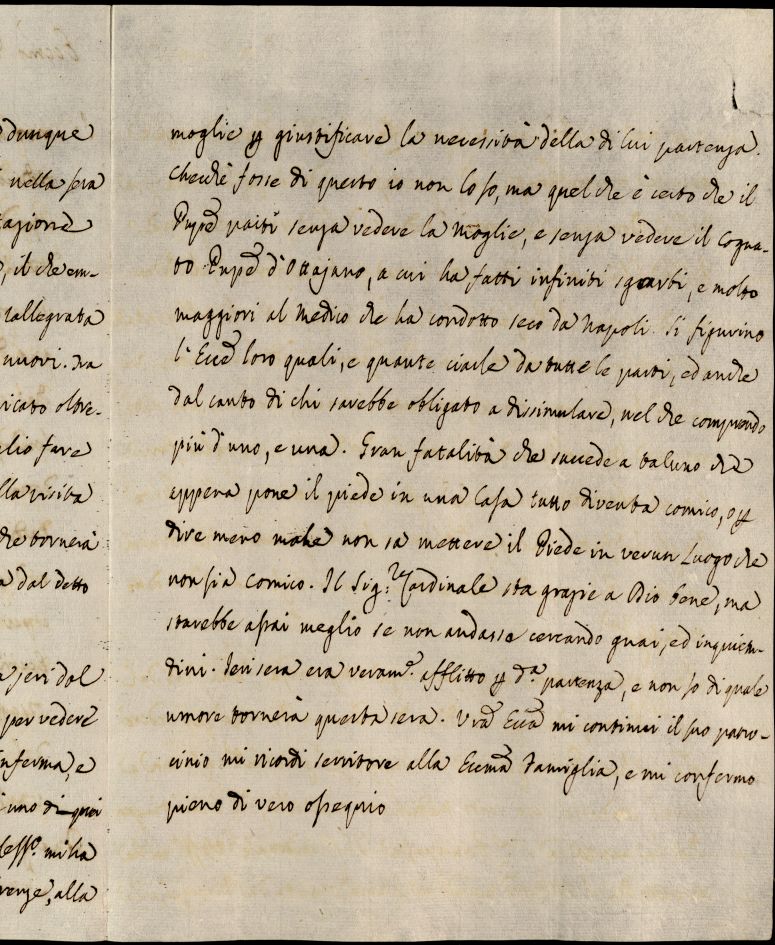 dunque
nella sera
tagione
, il che em-
rallegrata
nuovi. Ma
icato oltre-
glio fare
lla visita
che tornerà
a dal detto
a jeri dal
per vedere
nferma, e
uno di quei
less.º mi ha
renze, alla
moglie p giustificare la necessità della di lui partenza.
Checchè fosse di questo io non lo so, ma quel che è certo che il
Pnpe partì senza vedere la Moglie, e senza vedere il Cogna-
to Pnpe d'Ottajano, a cui ha fatti infiniti sgarbi, e molto
maggiori al Medico che ha condotto seco da Napoli. Si figurino
l'Ecce loro quali, e quante ciarle da tutte le parti, ed anche
dal canto di chi sarebbe obligato a dissimulare, nel che comprendo
più d'uno, e una. Gran fatalità che succede a taluno che
appena pone il piede in una Casa tutto diventa comico, o p
dire meno male non sa mettere il Piede in verun Luogo che
non sia Comico. Il Sig.re Cardinale sta grazie a Dio bene, ma
starebbe assai meglio se non andasse cercando guai, ed inquietu-
dini. Jeri sera era veram.e afflitto p d.a partenza, e non so di quale
umore tornerà questa sera. Vra Ecca mi continui il suo patro-
cinio mi ricordi servitore alla Eccma Famiglia, e mi confermo
pieno di vero ossequio